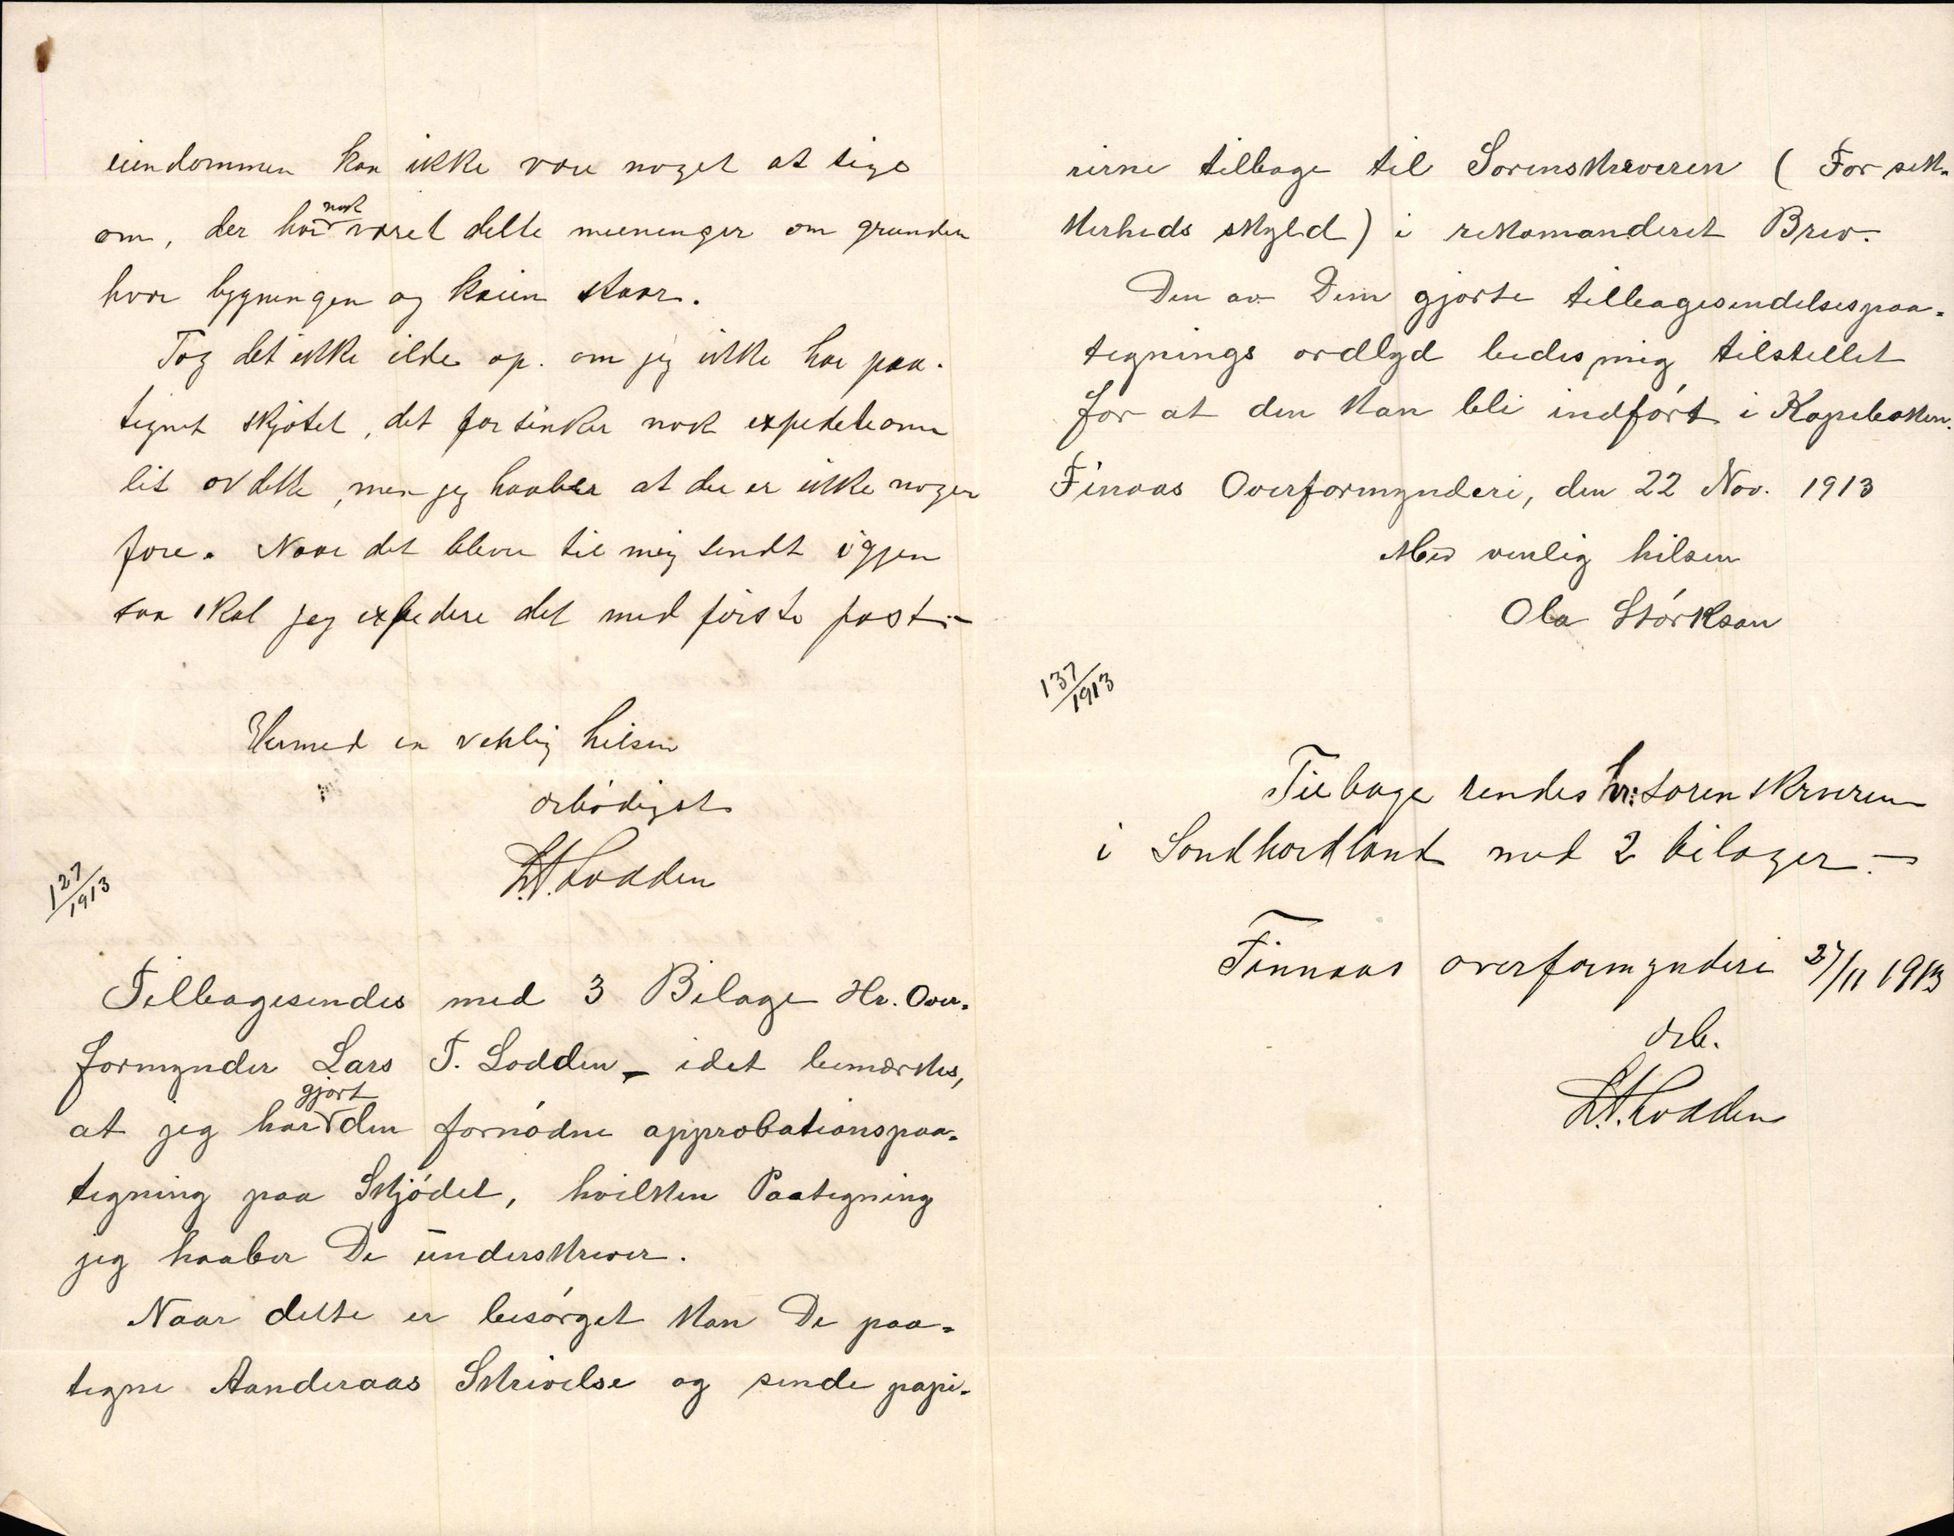 eiendommen kan ikke være noget at sige
om, der har nok været delte meeninger om grunden
hvor bygningen og kaien staar.
Tag det ikke ilde op. om jeg ikke har paa-
tegnet skjøtet, det forsinker nok expeditionen
lit av dette, men jeg haaber at der er ikke nogen
fare. Naar det bliver til mig sendt igjen
saa skal jeg expedere det med første post.-
Hermed en venlig hilsen
ærbødigst
L.T. Lodden
127/1913
Tilbagesendes med 3 Bilage Hr. Over-
formynder Lars T. Lodden - idet bemærkes,
at jeg har gjort den fornødne approbationspaa-
tegning paa Skjødet, hvilken Paategning
jeg haaber De underskriver.
Naar dette er besørget kan De paa-
tegne Aanderaas Skrivelse og sende papi-
rerne tilbage til Sorenskriveren ( For sik-
kerheds skyld) i rekomanderet Brev.
Den av Dem gjorte tilbagesendelsespaa-
tegnings ordlyd bedes mig tilstillet
for at den kan bli indført i Kopiboken.
Finaas Overformynderi, den 22 Nov. 1913
Med venlig hilsen
Ola Størkson
137/1913
Tilbage sendes hr: sorenskriveren
i Søndhordland med 2 bilager.-
Finnaas overformynderi 27/11 1913
ærb.
L.T. Lodden